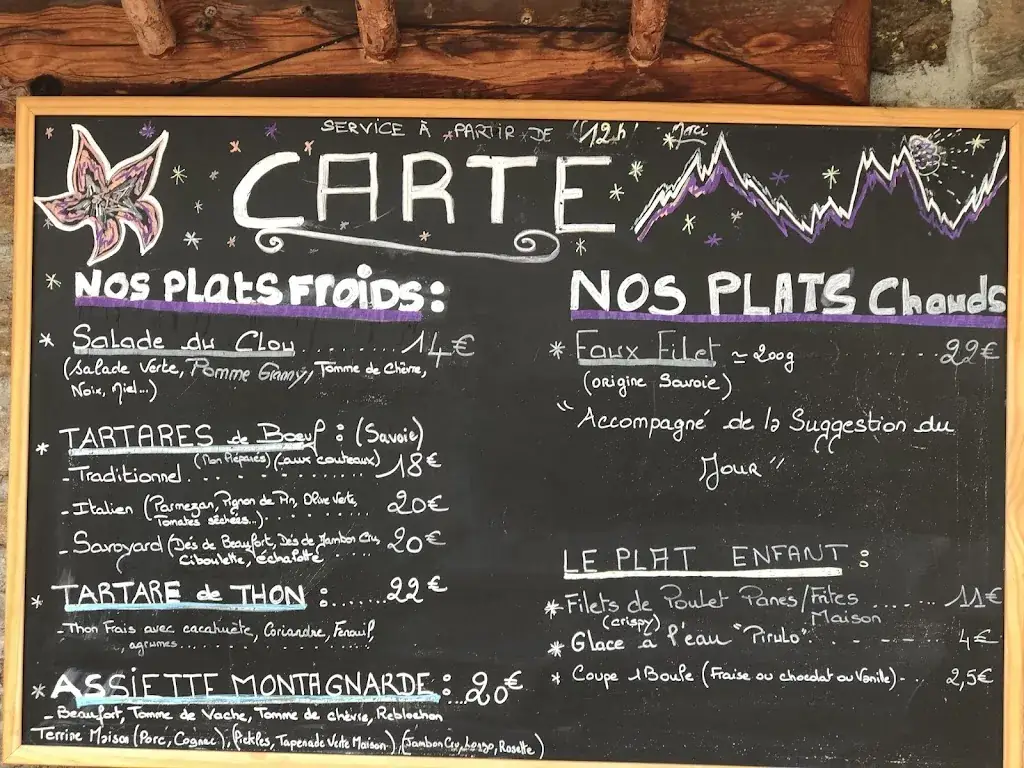 SERVICE À PARTIR DE 12h! Merci
CARTE
NOS PLatS FROiDS:
* Salade du Clou ........ 14€
(Salade Verte, Pomme Granny, Tomme de Chèvre,
Noix, Miel...)
* TARTARES de Boeuf : (Savoie)
(Non Préparés) (aux couteaux)
- Traditionnel ........ 18€
- Italien (Parmezan, Pignon de Pin, Olive Verte,
Tomates séchées...) ........ 20€
- Savoyard (Dés de Beaufort, Dés de Jambon Cru,
Ciboulette, échalotte 20€
* TARTARE de THON :....... 22€
- Thon Frais avec cacahuète, Coriandre, Fenouil,
agrumes........
* ASSIETTE MONTAGNARDE :...20€
- Beaufort, Tomme de Vache, Tomme de chèvre, Reblochon
Terrine Maison (Porc, Cognac), (Pickles, Tapenade Verte Maison), (Jambon Cru, Lonzo, Rosette)
NOS PLATS Chauds
* Faux Filet ≃ 200g ........ 22€
(origine Savoie)
"Accompagné de la Suggestion du
Jour"
LE PLAT ENFANT :
* Filets de Poulet Panés/Frites ........ 11€
(crispy) Maison
* Glace à l'eau "Pirulo" - - - - - 4€
* Coupe 1 Boule (Fraise ou chocolat ou Vanille)- .. 2,5€